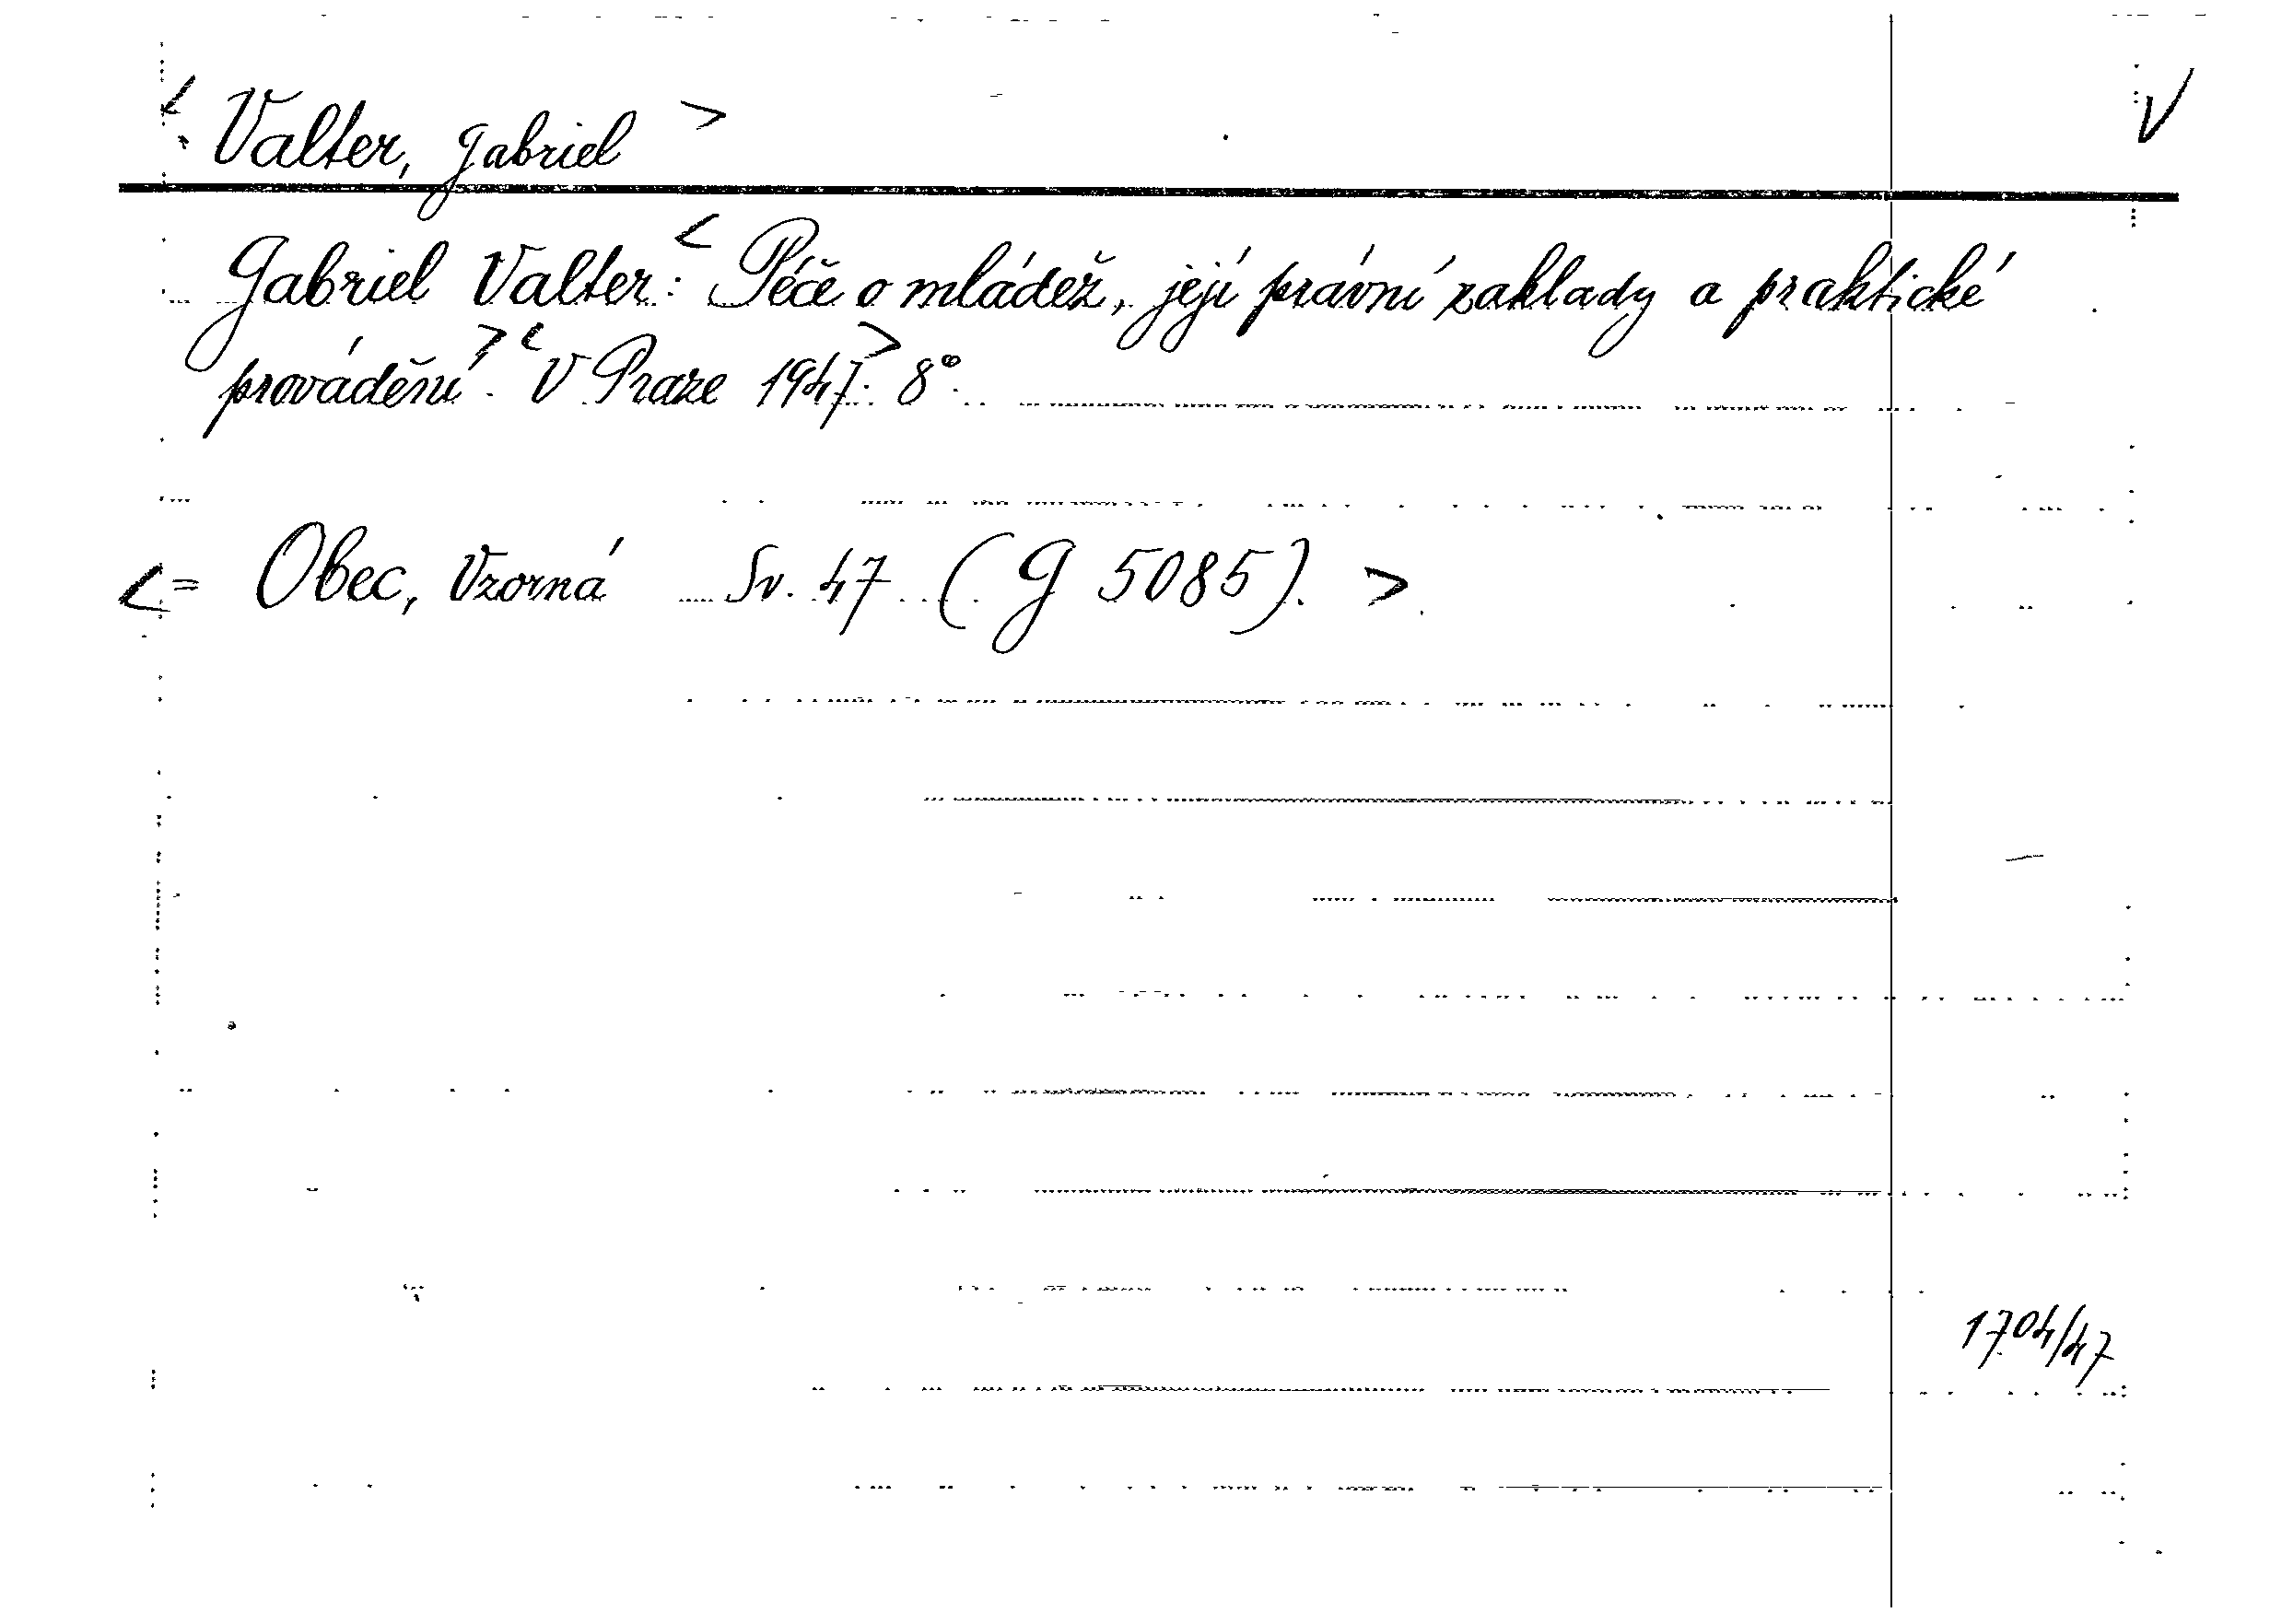 < Valter, Gabriel > V
Gabriel Valter: < Péče o mládež, její právní zaklady a praktické
provádění. > < V Praze 1947. > 8°.
< = Obec, Vzorná Sv. 47 (G 5085). >
1704/47